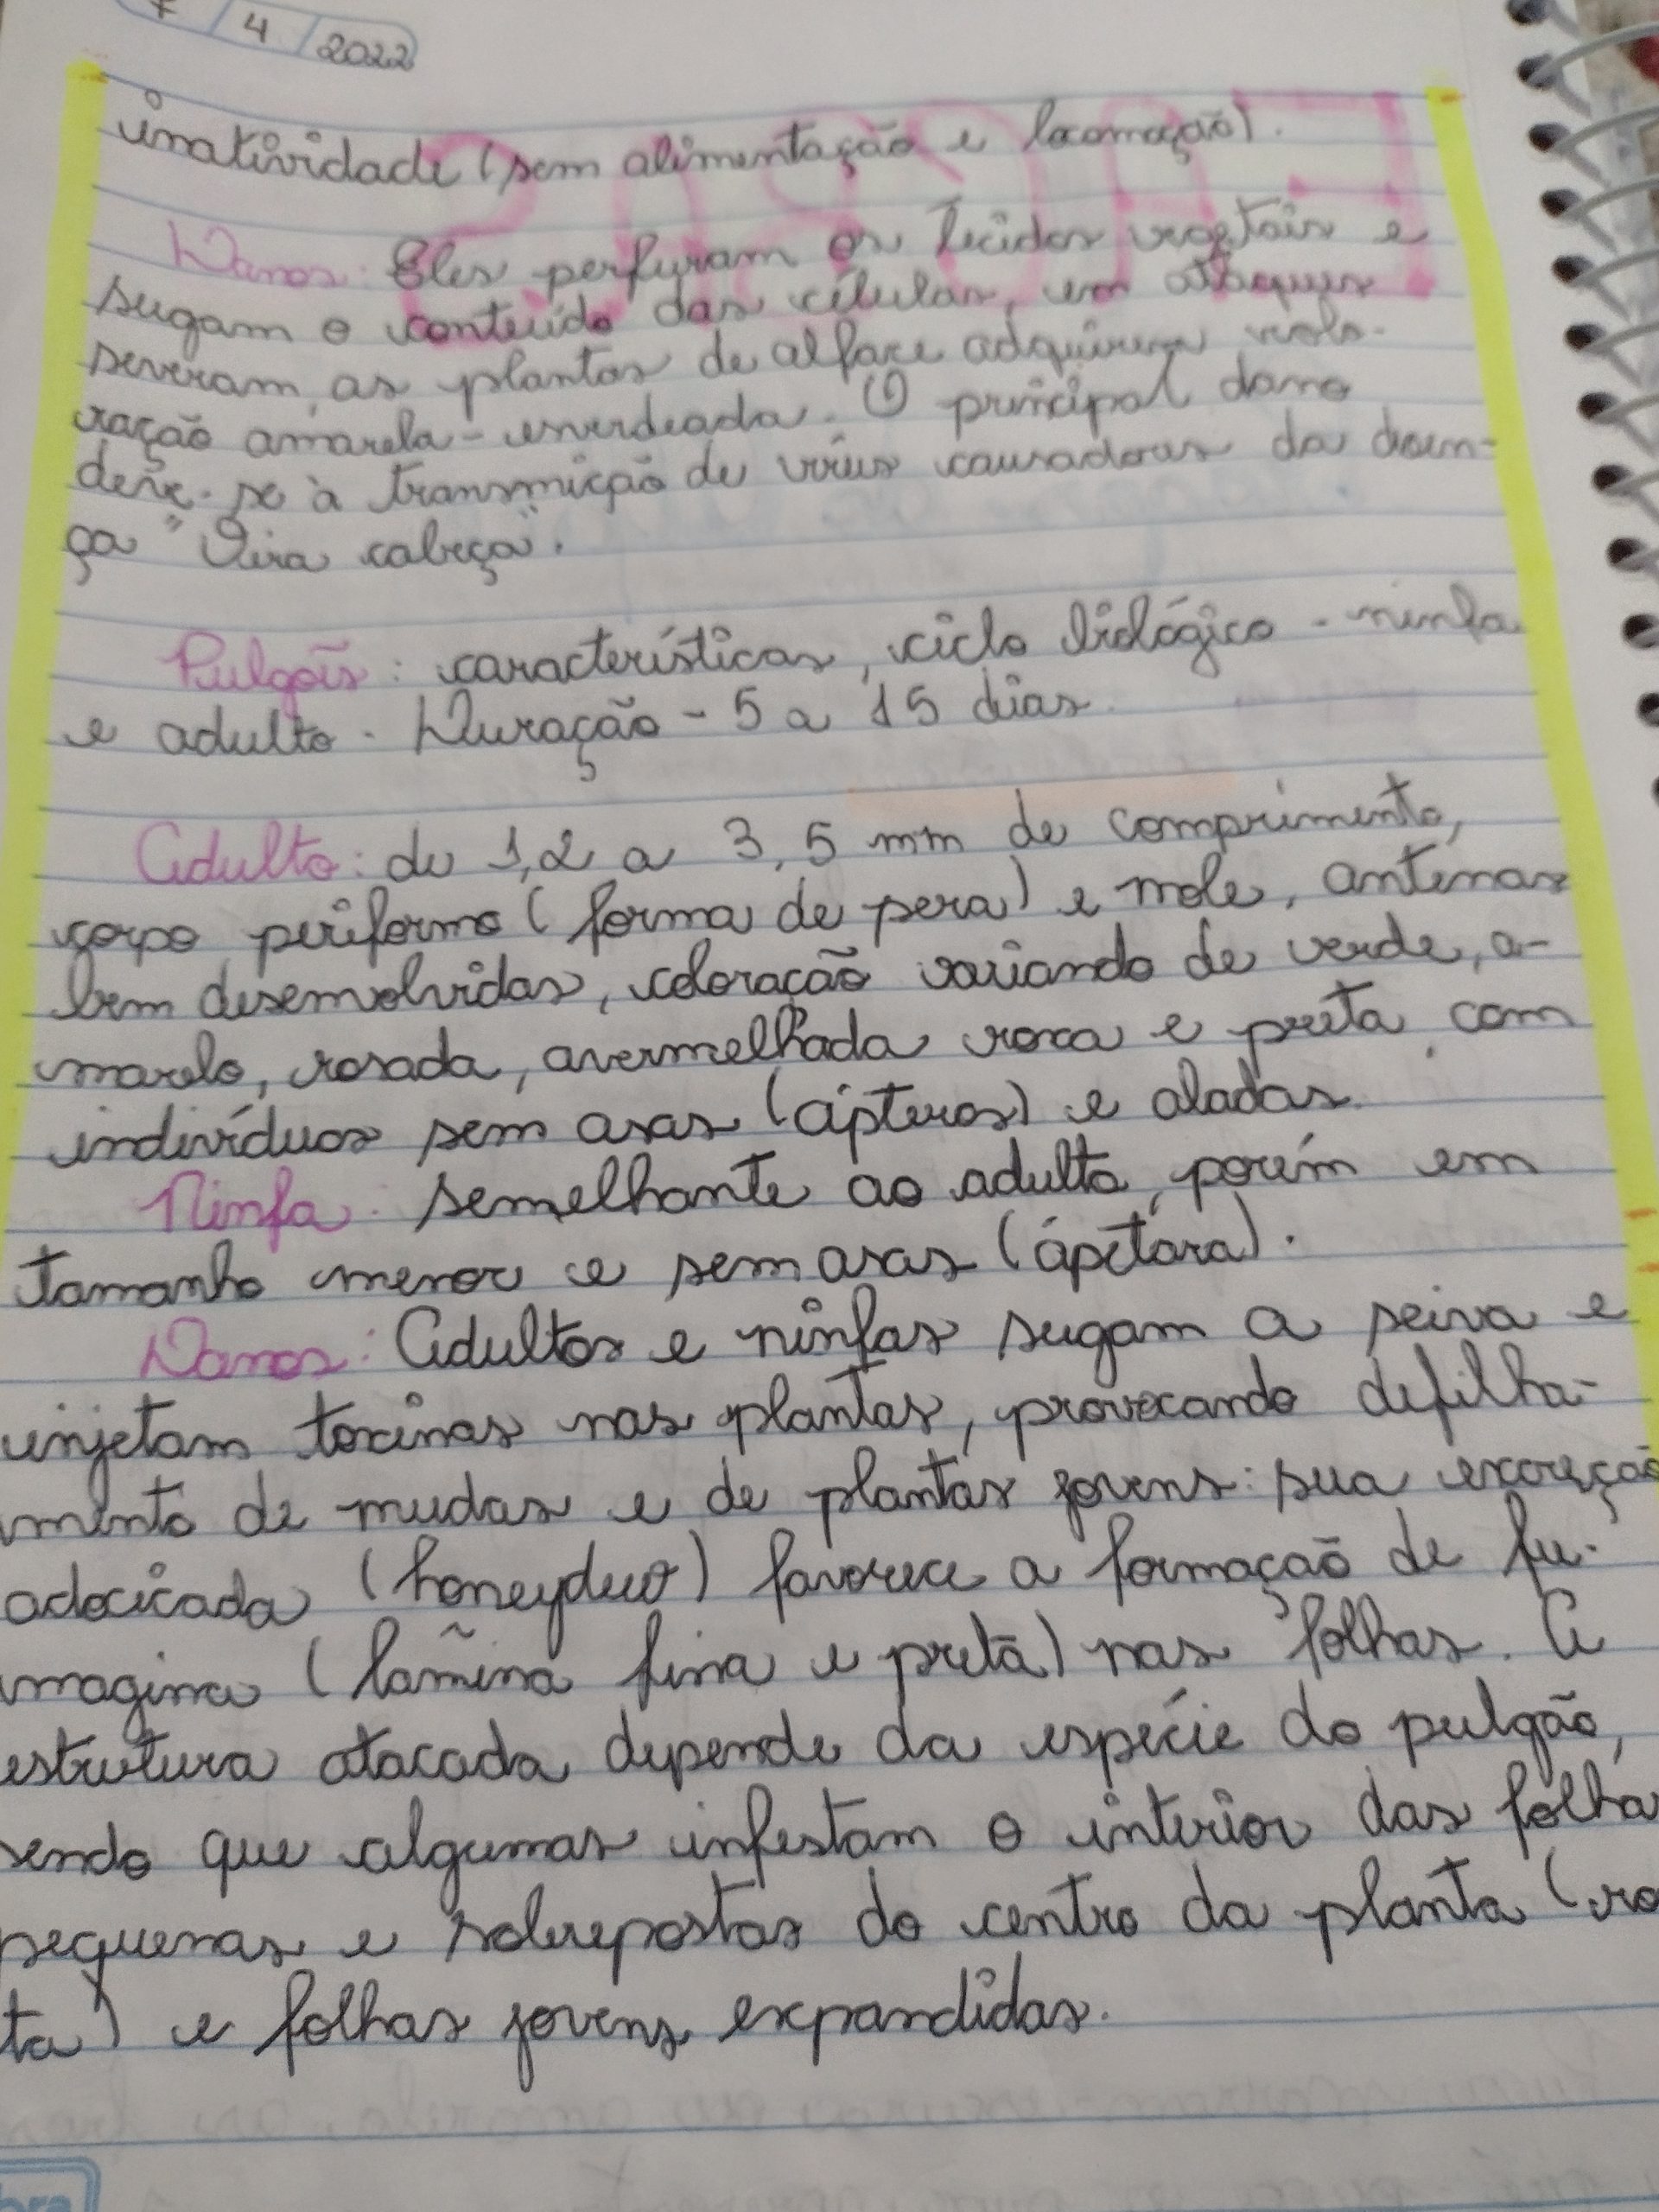 7 / 4 / 2022
inatividade (sem alimentação e locomoção).
Danos: Eles perfuram os tecidos vegetais e
sugam o conteúdo das células, em ataques
severam, as plantas de alface adquirem colo-
ração amarela-esverdeada. O principal dano
deve-se à transmição de vírus causadores da doen-
ça "Vira cabeça".
Pulgões: características, ciclo biológico - ninfa
e adulto. Duração - 5 a 15 dias.
Adulto: de 1,2 a 3,5 mm de comprimento,
corpo periforme (forma de pera) e mole, antenas
bem desenvolvidas, coloração variando de verde, a-
marelo, rosada, avermelhada roxa e preta, com
indivíduos sem asas (ápteros) e aladas.
Ninfa: semelhante ao adulto, porém em
tamanho menor e sem asas (ápetara).
Danos: Adultos e ninfas sugam a seiva e
injetam toxinas nas plantas, provocando defilha-
mento de mudas e de plantas jovens: sua excreção
adocicada (honeyduo) favorece a formação de fu-
magina (lamina fina e preta) nas folhas. A
estrutura atacada depende da espécie do pulgão,
sendo que algumas infestam o interior das folha
pequenas e sobrepostas do centro da planta (ro
ta) e folhas jovens expandidas.